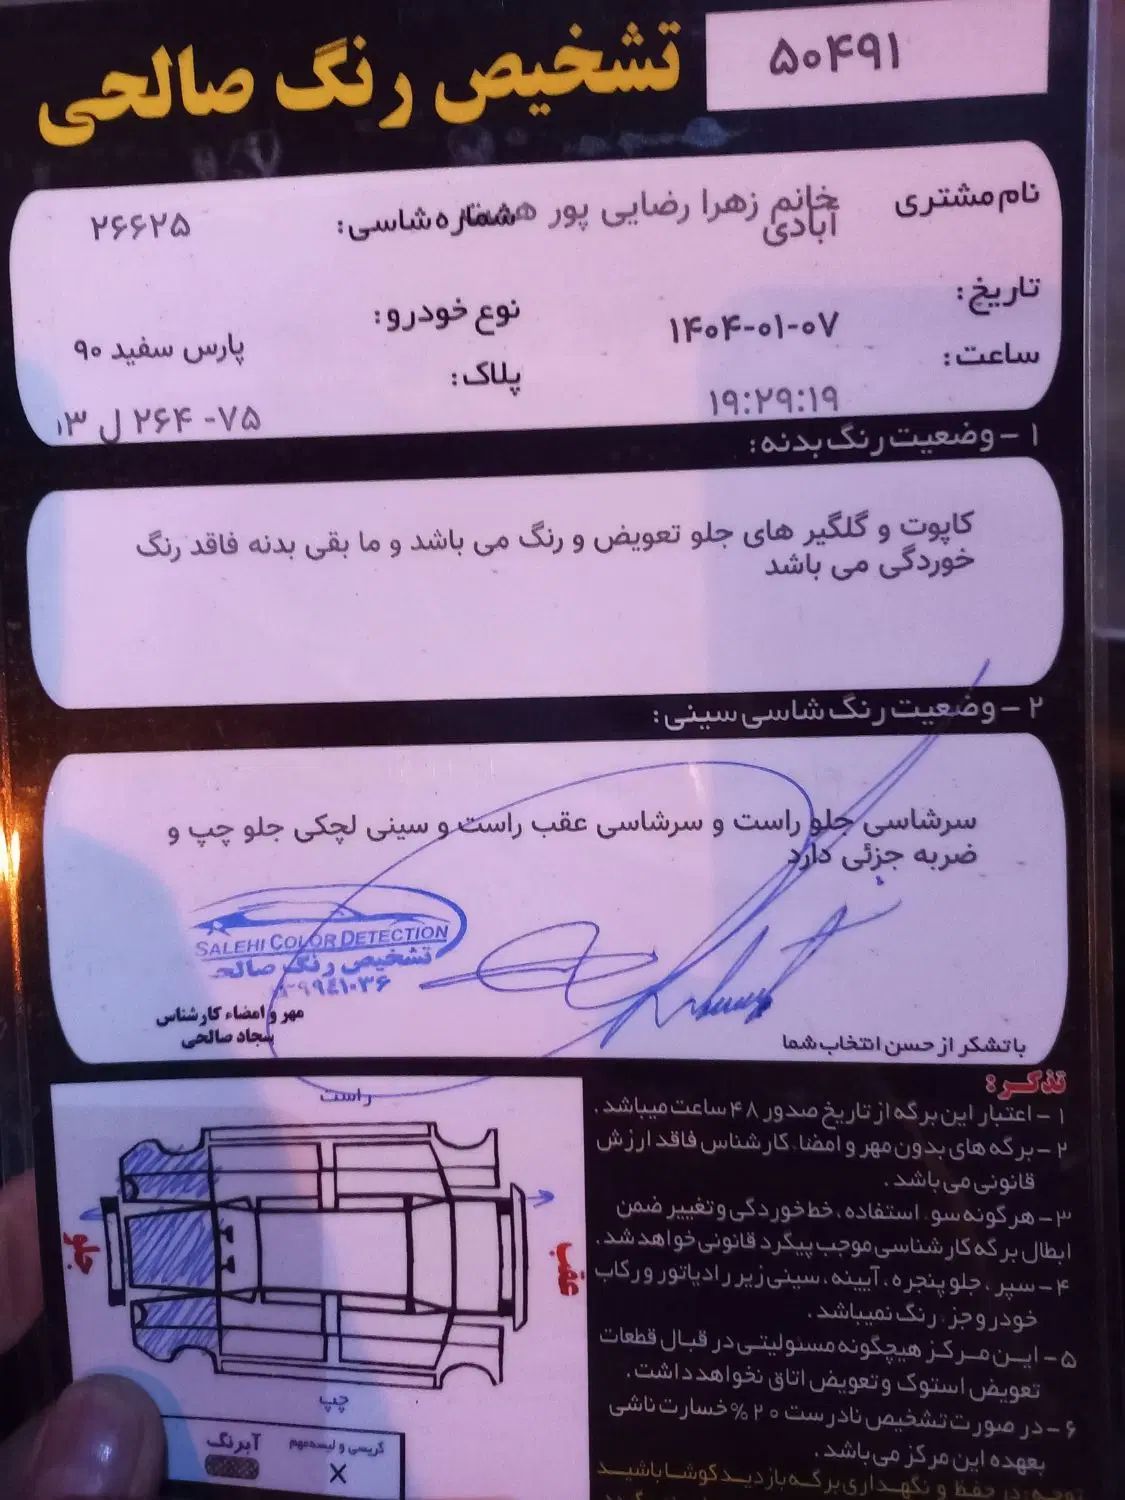 تشخیص رنگ صالحی
۵۰۴۹۱
نام مشتری
خانم زهرا رضایی پور هشت
آبادی
شماره شاسی:
۲۶۶۲۵
تاریخ:
۱۴۰۴-۰۱-۰۷
نوع خودرو:
پارس سفید ۹۰
ساعت:
۱۹:۲۹:۱۹
پلاک:
۷۵- ۲۶۴ ل ۱۳
۱ - وضعیت رنگ بدنه:
کاپوت و گلگیر های جلو تعویض و رنگ می باشد و ما بقی بدنه فاقد رنگ
خوردگی می باشد
۲ - وضعیت رنگ شاسی سینی:
سرشاسی جلو راست و سرشاسی عقب راست و سینی لچکی جلو چپ و
ضربه جزئی دارد
SALEHI COLOR DETECTION
تشخیص رنگ صالحی
مهر و امضاء کارشناس
سجاد صالحی
با تشکر از حسن انتخاب شما
تذکر:
۱ - اعتبار این برگه از تاریخ صدور ۴۸ ساعت میباشد.
۲- برگه های بدون مهر و امضا. کارشناس فاقد ارزش
قانونی می باشد.
۳- هرگونه سو. استفاده، خط خوردگی و تغییر ضمن
ابطال برگه کارشناسی موجب پیگرد قانونی خواهد شد.
۴- سپر، جلو پنجره، آیینه، سینی زیر رادیاتور و رکاب
خودرو جز. رنگ نمیباشد.
۵ - ایـن مـرکـز هیچگونه مسئولیتی در قبال قطعات
تعویض استوک و تعویض اتاق نخواهد داشت.
۶ - در صورت تشخیص نادرست ۲۰% خسارت ناشی
بعهده این مرکز می باشد.
توجه: در حفظ و نگهـداری برگـه بازدیـد کوشـا باشیـد
راست
جلو
عقب
چپ
آبرنگ
گریسی و لیسه مهم
X